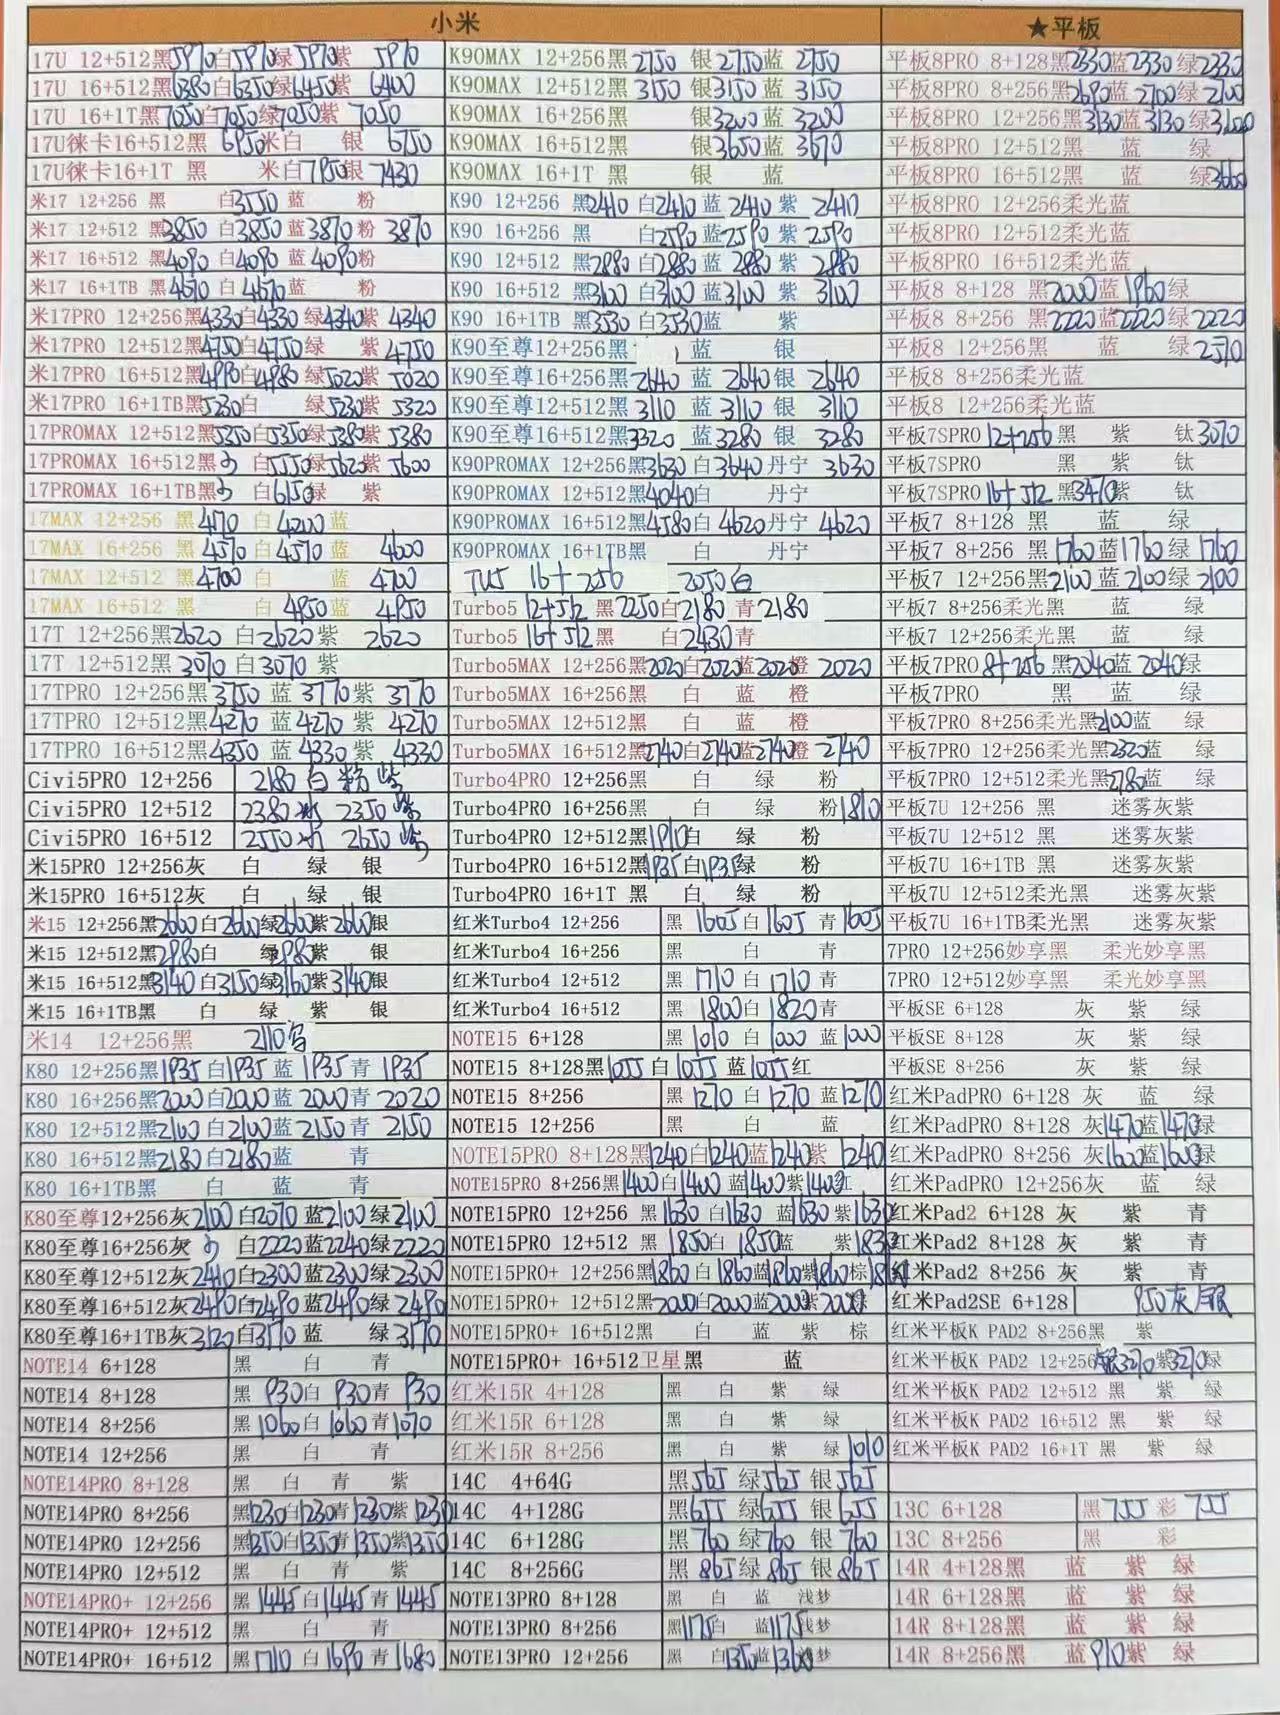 小米
17U 12+512黑5970白5970绿5970紫 5970
17U 16+512黑6380白6350绿6450紫 6400
17U 16+1T黑7050白7050绿7050紫 7050
17U徕卡16+512黑 6950米白 银 6750
17U徕卡16+1T 黑 米白7950银 7430
米17 12+256 黑 白3550蓝 粉
米17 12+512 黑3850白3850蓝3870粉 3870
米17 16+512 黑4090白4090蓝4090粉
米17 16+1TB 黑4670白4670蓝 粉
米17PRO 12+256黑4330白4330绿4340紫 4340
米17PRO 12+512黑4750白4750绿 紫 4750
米17PRO 16+512黑4990白4980绿5020紫 5020
米17PRO 16+1TB黑5230白 绿5230紫 5320
17PROMAX 12+512黑5350白5350绿5380紫 5380
17PROMAX 16+512黑 白5550绿5620紫 5600
17PROMAX 16+1TB黑 白6150绿 紫
17MAX 12+256 黑 4170 白 4200 蓝
17MAX 16+256 黑 4570 白 4570 蓝 4600
17MAX 12+512 黑 4700 白 蓝 4700
17MAX 16+512 黑 白 4950 蓝 4950
17T 12+256黑2620 白2620紫 2620
17T 12+512黑 3070 白3070 紫
17TPRO 12+256黑 3750 蓝 3770紫 3770
17TPRO 12+512黑 4270 蓝 4270 紫 4270
17TPRO 16+512黑4350 蓝 4330 紫 4330
Civi5PRO 12+256 2180 白 粉 紫
Civi5PRO 12+512 2380 2350 紫
Civi5PRO 16+512 2550 2650 紫
米15PRO 12+256灰 白 绿 银
米15PRO 16+512灰 白 绿 银
米15 12+256黑2600白2600绿2600紫2600银
米15 12+512黑2980白 绿2980紫 银
米15 16+512黑3140白3150绿3160紫3140银
米15 16+1TB黑 白 绿 紫 银
米14 12+256黑 2110
K80 12+256黑1935白1935 蓝 1935青 1935
K80 16+256黑2000白2000 蓝 2000青 2020
K80 12+512黑2100白2100蓝 2150 青 2150
K80 16+512黑2180白2180蓝 青
K80 16+1TB黑 白 蓝 青
K80至尊12+256灰2100白2070 蓝2100绿2100
K80至尊16+256灰 白2220蓝2240绿2220
K80至尊12+512灰2410白2300蓝2300绿2300
K80至尊16+512灰2490白2490 蓝2490绿2490
K80至尊16+1TB灰3120白3170 蓝 绿3170
NOTE14 6+128 黑 白 青
NOTE14 8+128 黑 930白 930青 930
NOTE14 8+256 黑 1060白1060青1070
NOTE14 12+256 黑 白 青
NOTE14PRO 8+128 黑 白 青 紫
NOTE14PRO 8+256 黑1230白1230青1230紫1230
NOTE14PRO 12+256 黑1350白1350青1350紫1350
NOTE14PRO 12+512 黑 白 青 紫
NOTE14PRO+ 12+256 黑 1445白1445青1445
NOTE14PRO+ 12+512 黑 白 青
NOTE14PRO+ 16+512 黑1710 白1690青1680
K90MAX 12+256黑 2750 银2750蓝 2750
K90MAX 12+512黑 3150 银3150蓝 3150
K90MAX 16+256黑 银3200蓝 3200
K90MAX 16+512黑 银3650蓝 3670
K90MAX 16+1T 黑 银 蓝
K90 12+256 黑2410 白2410 蓝 2410 紫 2410
K90 16+256 黑 白2590 蓝2590 紫 2590
K90 12+512 黑2880 白2880 蓝 2880 紫 2880
K90 16+512 黑3100 白3100 蓝3100 紫 3100
K90 16+1TB 黑3530 白3530蓝 紫
K90至尊12+256黑 蓝 银
K90至尊16+256黑2640 蓝 2640银 2640
K90至尊12+512黑 3110 蓝 3110 银 3110
K90至尊16+512黑3320 蓝 3280 银 3280
K90PROMAX 12+256黑3630白3640丹宁 3630
K90PROMAX 12+512黑4040白 丹宁
K90PROMAX 16+512黑4580白 4620丹宁 4620
K90PROMAX 16+1TB黑 白 丹宁
TU5 16+256 2050 白
Turbo5 12+512 黑 2250白2180 青 2180
Turbo5 16+512 黑 白2430青
Turbo5MAX 12+256黑2020白2020蓝2020橙 2020
Turbo5MAX 16+256黑 白 蓝 橙
Turbo5MAX 12+512黑 白 蓝 橙
Turbo5MAX 16+512黑2740白2740蓝2740橙 2740
Turbo4PRO 12+256黑 白 绿 粉
Turbo4PRO 16+256黑 白 绿 粉1810
Turbo4PRO 12+512黑1910白 绿 粉
Turbo4PRO 16+512黑1935白1935绿 粉
Turbo4PRO 16+1T 黑 白 绿 粉
红米Turbo4 12+256 黑 1605白 1605 青 1605
红米Turbo4 16+256 黑 白 青
红米Turbo4 12+512 黑 1710白 1710 青
红米Turbo4 16+512 黑 1800白 1820青
NOTE15 6+128 黑 1010 白 1000 蓝1000
NOTE15 8+128黑1055 白1055 蓝1055红
NOTE15 8+256 黑1270 白 1270 蓝1270
NOTE15 12+256 黑 白 蓝
NOTE15PRO 8+128黑1240白1240蓝1240紫 1240
NOTE15PRO 8+256黑1400白1400 蓝1400紫1400红
NOTE15PRO 12+256 黑1630白1630 蓝1630紫1630
NOTE15PRO 12+512 黑 1850白 1850蓝 紫1830
NOTE15PRO+ 12+256黑1860白 1860蓝1860紫1860棕
NOTE15PRO+ 12+512黑2000白2000蓝2000紫2000棕
NOTE15PRO+ 16+512黑 白 蓝 紫 棕
NOTE15PRO+ 16+512卫星黑 蓝
红米15R 4+128 黑 白 紫 绿
红米15R 6+128 黑 白 紫 绿
红米15R 8+256 黑 白 紫 绿1010
14C 4+64G 黑565 绿565 银565
14C 4+128G 黑655绿655 银655
14C 6+128G 黑 760绿760 银 760
14C 8+256G 黑 865绿865 银865
NOTE13PRO 8+128 黑 白 蓝 浅梦
NOTE13PRO 8+256 黑1175白 蓝1175浅梦
NOTE13PRO 12+256 黑 白1350蓝1360浅梦
★平板
平板8PRO 8+128黑2330蓝2330绿2330
平板8PRO 8+256 黑2690蓝 2700绿 2700
平板8PRO 12+256黑3130蓝3130绿3100
平板8PRO 12+512黑 蓝 绿
平板8PRO 16+512黑 蓝 绿3660
平板8PRO 12+256柔光蓝
平板8PRO 12+512柔光蓝
平板8PRO 16+512柔光蓝
平板8 8+128 黑2000蓝1960绿
平板8 8+256 黑2220蓝2220绿2220
平板8 12+256黑 蓝 绿2570
平板8 8+256柔光蓝
平板8 12+256柔光蓝
平板7SPRO 12+256 黑 紫 钛3070
平板7SPRO 黑 紫 钛
平板7SPRO 16+512 黑3410紫 钛
平板7 8+128 黑 蓝 绿
平板7 8+256 黑1760蓝1760绿 1760
平板7 12+256黑2100蓝2100绿 2100
平板7 8+256柔光黑 蓝 绿
平板7 12+256柔光黑 蓝 绿
平板7PRO 8+256 黑2040蓝 2040绿
平板7PRO 黑 蓝 绿
平板7PRO 8+256柔光黑2100蓝 绿
平板7PRO 12+256柔光黑2320蓝 绿
平板7PRO 12+512柔光黑2780蓝 绿
平板7U 12+256 黑 迷雾灰紫
平板7U 12+512 黑 迷雾灰紫
平板7U 16+1TB 黑 迷雾灰紫
平板7U 12+512柔光黑 迷雾灰紫
平板7U 16+1TB柔光黑 迷雾灰紫
7PRO 12+256妙享黑 柔光妙享黑
7PRO 12+512妙享黑 柔光妙享黑
平板SE 6+128 灰 紫 绿
平板SE 8+128 灰 紫 绿
平板SE 8+256 灰 紫 绿
红米PadPRO 6+128 灰 蓝 绿
红米PadPRO 8+128 灰1470蓝1470绿
红米PadPRO 8+256 灰1600蓝1600绿
红米PadPRO 12+256灰 蓝 绿
红米Pad2 6+128 灰 紫 青
红米Pad2 8+128 灰 紫 青
红米Pad2 8+256 灰 紫 青
红米Pad2SE 6+128 950灰/银
红米平板K PAD2 8+256黑 紫
红米平板K PAD2 12+256银3270紫3270绿
红米平板K PAD2 12+512 黑 紫 绿
红米平板K PAD2 16+512 黑 紫 绿
红米平板K PAD2 16+1T 黑 紫 绿
13C 6+128 黑 755 彩 755
13C 8+256 黑 彩
14R 4+128黑 蓝 紫 绿
14R 6+128黑 蓝 紫 绿
14R 8+128黑 蓝 紫 绿
14R 8+256黑 蓝910紫 绿